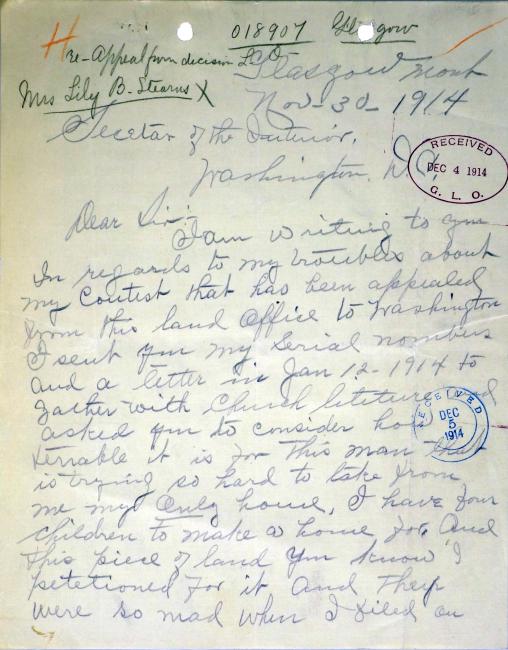 018907 Glasgow
re-Appeal from decision L.O.
Mrs Lily B. Stearns X
Glasgow Mont
Nov-30-1914
Secetar of the Interior,
Washington, D.C.
RECEIVED
DEC 4 1914
G. L. O.
Dear Sir:
I am writing to you
In regards to my troubles about
my Contest that has been appealed
from this land office to Washington
I sent you my Serial nombers
and a letter in Jan 12-1914 to
gather with Church liteture and
asked you to consider how
terrable it is for this man that
is trying so hard to take from
me my only home, I have four
children to make a home for. And
this piece of land you know I
petetioned for it and they
were so mad when I filed on
RECEIVED
DEC
5
1914